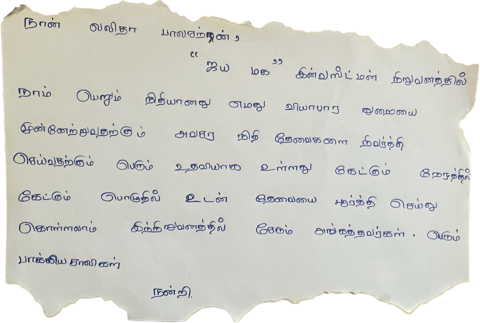 நான் லலிதா பாலசந்திரன்,
"ஜய மக" இன்வஸ்ட்மன் நிறுவனத்தில்
நாம் பெறும் நிதியானது எமது வியாபார துறையை
முன்னேற்றுவதற்கும் அவசர நிதி தேவைகளை நிவர்த்தி
செய்வதற்கும் பெரும் உதவியாக உள்ளது கேட்கும் நேரத்தில்
கேட்கும் பொழுதில் உடன் தேவையை பூர்த்தி செய்து
கொள்ளலாம் இந்நிறுவனத்தில் சேரும் அங்கத்தவர்கள். பெரும்
பாக்கியசாலிகள்
நன்றி.